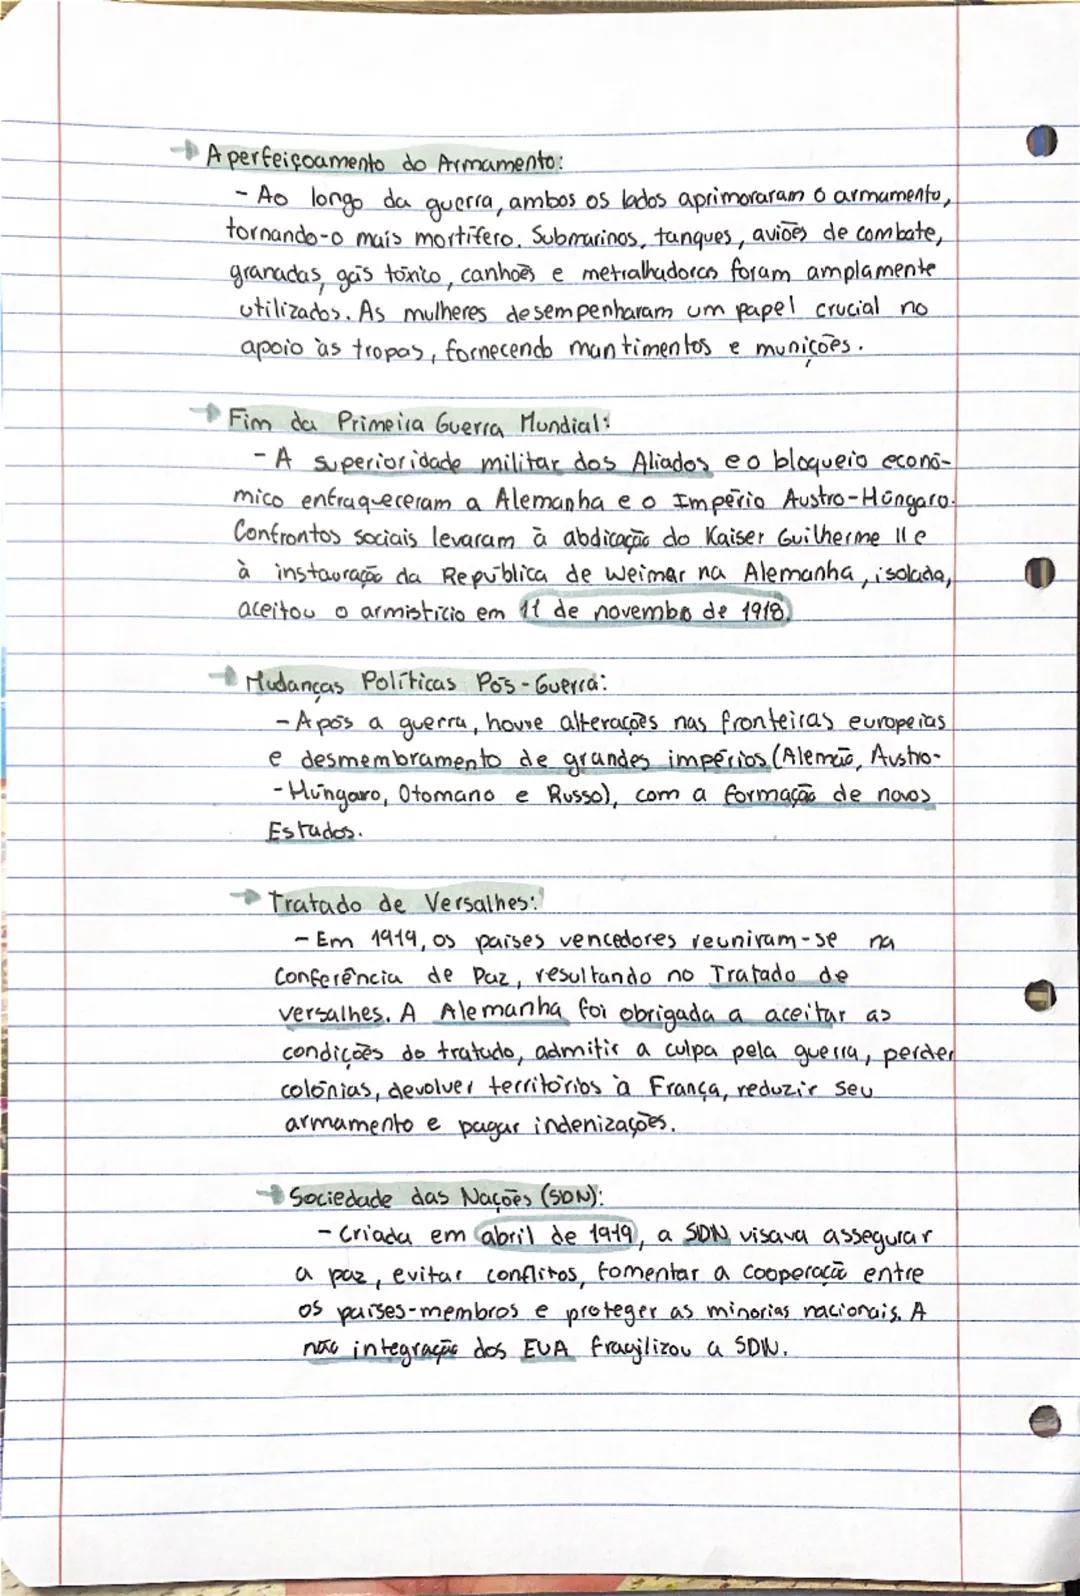 → Aperfeiçoamento do Armamento:
- Ao longo da guerra, ambos os lados aprimoraram o armamento,
tornando-o mais mortífero. Submarinos, tanques, aviões de combate,
granadas, gás tóxico, canhões e metralhadoras foram amplamente
utilizados. As mulheres desempenharam um papel crucial no
apoio às tropas, fornecendo mantimentos e munições.
→ Fim da Primeira Guerra Mundial:
- A superioridade militar dos Aliados e o bloqueio econó-
mico enfraqueceram a Alemanha e o Império Austro-Húngaro.
Confrontos sociais levaram à abdicação do Kaiser Guilherme II e
à instauração da República de Weimar na Alemanha, isolada,
aceitou o armistício em 11 de novembo de 1918.
→ Mudanças Políticas Pós-Guerra:
- Após a guerra, houve alterações nas fronteiras europeias
e desmembramento de grandes impérios (Alemão, Austro-
-Húngaro, Otomano e Russo), com a formação de novos
Estados.
→ Tratado de Versalhes:
- Em 1919, os países vencedores reuniram-se na
Conferência de Paz, resultando no Tratado de
versalhes. A Alemanha foi obrigada a aceitar as
condições do tratado, admitir a culpa pela guerra, perder
colónias, devolver territórios à França, reduzir seu
armamento e pagar indenizações.
→ Sociedade das Nações (SDN):
- Criada em abril de 1919, a SDN visava assegurar
a paz, evitar conflitos, fomentar a cooperação entre
os países-membros e proteger as minorias nacionais. A
não integração dos EUA fragilizou a SDN.